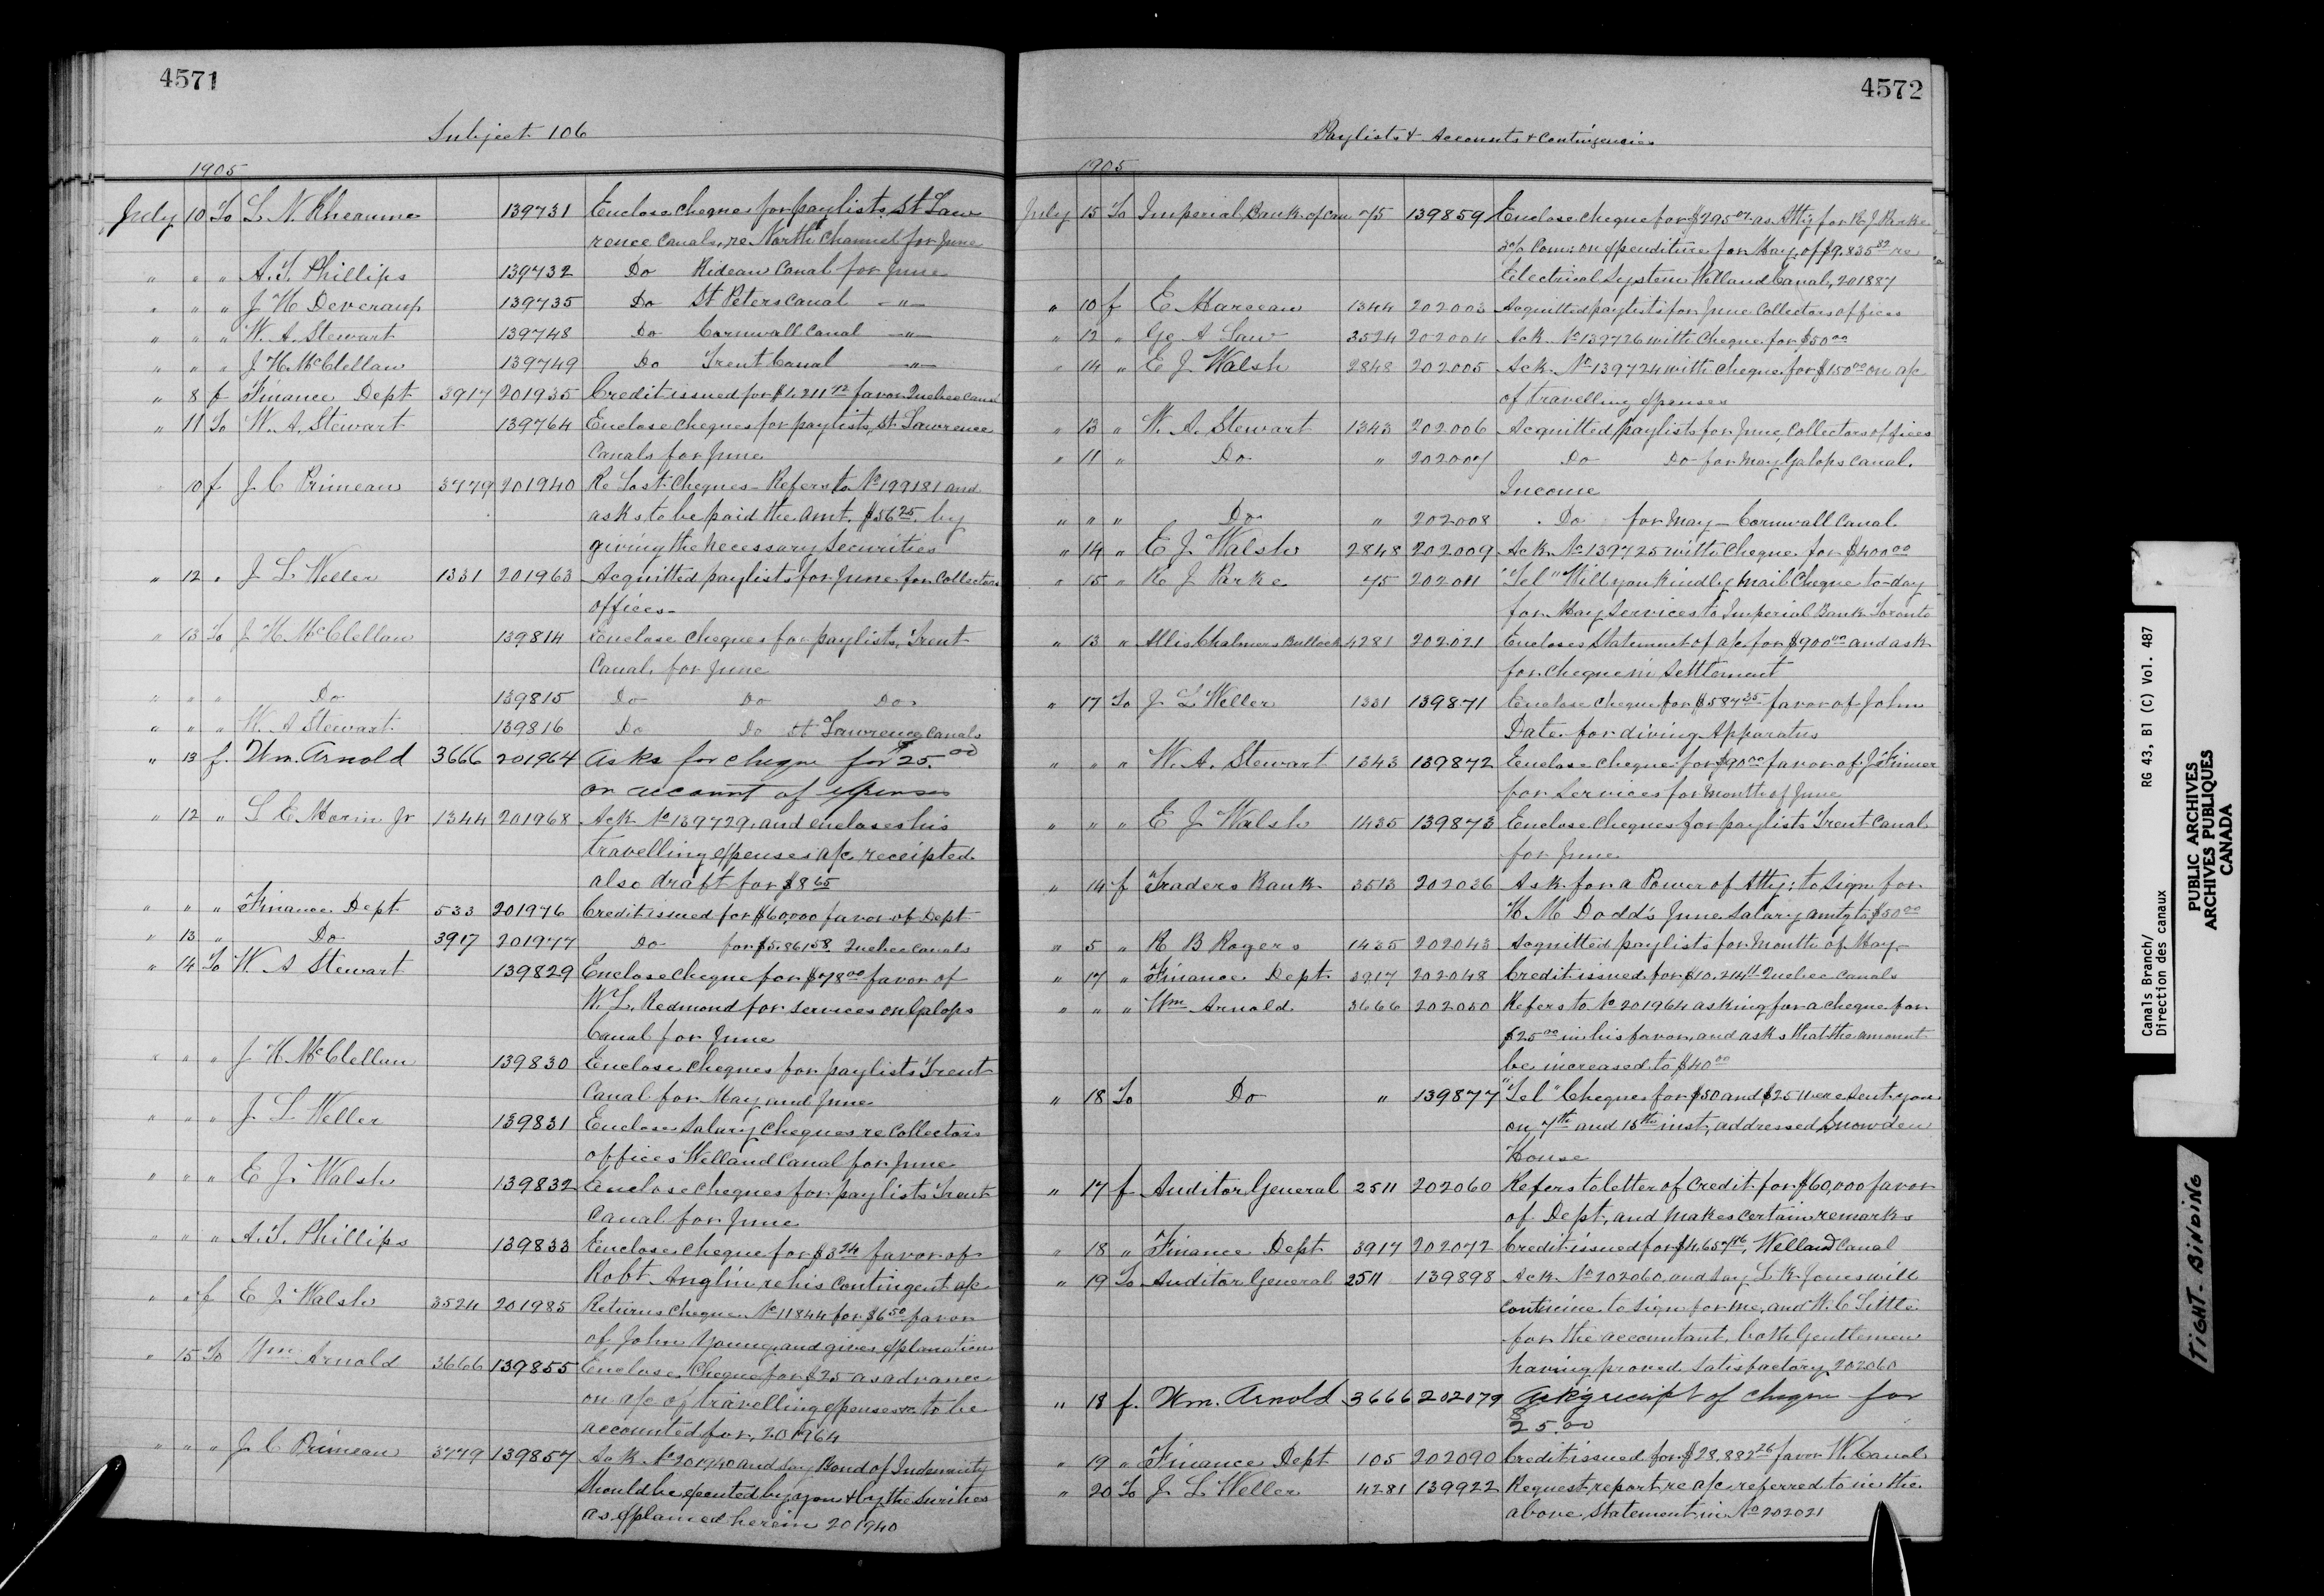 4571
Subject 106
1905
July 10 To L. N. Rheaume 139731 Enclose cheque for paylists, St Law
rence Canals, re North Channel for June
" " " A. T. Phillips 139732 Do Rideau Canal for June
" " " J H Deveraux 139735 Do St Peters Canal "
" " " W. A. Stewart 139748 Do Cornwall Canal "
" " " J. H. McClellan 139749 Do Trent Canal "
" 8 f Finance Dept 3917 201935 Credit issued for $1,211 72 favor Quebec Canal
" 11 To W. A. Stewart 139764 Enclose cheques for paylists, St. Lawrence
Canals for June
" 10 f J C Primeau 3779 201940 Re Lost Cheques - Refers to No 199181 and
asks to be paid the amt. $56 25 by
giving the necessary securities
" 12 " J. L. Weller 1331 201963 Acquitted paylists for June for Collectors
offices -
" 13 To J. H. McClellan 139814 Enclose cheques for paylists, Trent
Canal for June
" " " Do 139815 Do Do Do
" " " W. A Stewart 139816 Do Do St Lawrence Canals
" 13 f. Wm. Arnold 3666 201964 Asks for cheque for $25.00
on account of expenses
" 12 " L E Morin Jr 1344 201968 Ack No 139729, and encloses his
travelling expenses a/c receipted
also draft for $8 65
" " " Finance Dept 533 201976 Credit issued for $60,000 favor of Dept
" 13 " Do 3917 201977 Do for $5,861 58 Quebec Canals
" 14 To W. A Stewart 139829 Enclose cheque for $78 00 favor of
W. L. Redmond for services on Galops
Canal for June
" " " J. H McClellan 139830 Enclose cheques for paylists Trent
Canal for May and June
" " " J. L. Weller 139831 Enclose Salary Cheques re Collectors
offices Welland Canal for June
" " " E. J. Walsh 139832 Enclose cheques for paylists Trent
Canal for June
" " " A. T. Phillips 139833 Enclose cheque for $3 24 favor of
Robt Anglin, re his contingent a/c
" " f E J Walsh 3524 201985 Returns cheque No 11844 for $6 50 favor
of John Young and gives explanation
" 15 To Wm Arnold 3666 139855 Enclose Cheque for $25 as advance
on a/c of travelling expenses to be
accounted for, 201964
" " " J. C Primeau 3779 139857 Ack No 201940 and say Bond of Indemnity
should be executed by you & by the Surities
as explained herein 201940
4572
Paylists & Accounts & Contingencies
1905
July 15 To Imperial Bank of Can 75 139859 Enclose cheque for $295 07 as Atty for R. J. Parke
3% Com: on expenditure for May, of $9,835 82 re
Electrical System Welland Canal, 201887
" 10 f E Marceau 1344 202003 Acquitted paylists for June Collectors offices
" 12 " Ge A Law 3524 202004 Ack No 139726 with Cheque for $50 00
" 14 " E J Walsh 2848 202005 Ack. No 139724 with cheque for $150 00 on a/c
of travelling expenses
" 13 " W. A. Stewart 1343 202006 Acquitted paylists for June, Collectors offices
" 11 " Do " 202007 Do Do for May Galops Canal.
Income
" " " Do " 202008 Do for May - Cornwall Canal
" 14 " E J. Walsh 2848 202009 Ack No 139725 with Cheque for $400 00
" 15 " R J Parke 75 202011 "Tel" Will you kindly mail Cheque to-day
for May Services to Imperial Bank Toronto
" 13 " Allis Chalmers Bullock 4281 202021 Encloses Statement of a/c for $900 00 and ask
for cheque in Settlement
" 17 To J. L Weller 1331 139871 Enclose cheque for $587 35 favor of John
Date for diving Apparatus
" " " W. A. Stewart 1343 139872 Enclose cheque for $90 00 favor of J Finner
for Services for month of June
" " " E J Walsh 1435 139873 Enclose cheques for paylists Trent Canal
for June
" 14 f Traders Bank 3513 202036 Ask for a Power of Atty; to Sign for
H. M Dodd's June Salary amtg to $50 00
" 5 " R B Rogers 1435 202043 Acquitted paylists for Month of May -
" 17 " Finance Dept 3917 202048 Credit issued for $10,214 11 Quebec Canals
" " " Wm Arnold 3666 202050 Refers to No 201964 asking for a cheque for
$25 00 in his favor, and asks that the amount
be increased to $40 00
" 18 To Do " 139877 "Tel" Cheques for $50 and $25 were sent you
on 7th and 15th inst, addressed Snowden
House
" 17 f Auditor General 2511 202060 Refers to letter of Credit for $60,000 favor
of Dept, and makes certain remarks
" 18 " Finance Dept 3917 202072 Credit issued for $4,657 16, Welland Canal
" 19 To Auditor General 2511 139898 Ack No 202060, and say L. K. Jones will
continue to sign for me, and W. C Little
for the accountant, both Gentlemen
having proved satisfactory, 202060
" 18 f. Wm. Arnold 3666 202079 Ack'g receipt of cheque for
$25.00
" 19 " Finance Dept 105 202090 Credit issued for $28,882 26 favor W. Canal
" 20 To J. L Weller 4281 139922 Request report re a/c referred to in the
above Statement in No 202021
Canals Branch/ RG 43, B1 (C) Vol. 487
Direction des canaux
PUBLIC ARCHIVES
ARCHIVES PUBLIQUES
CANADA
TIGHT-BINDING